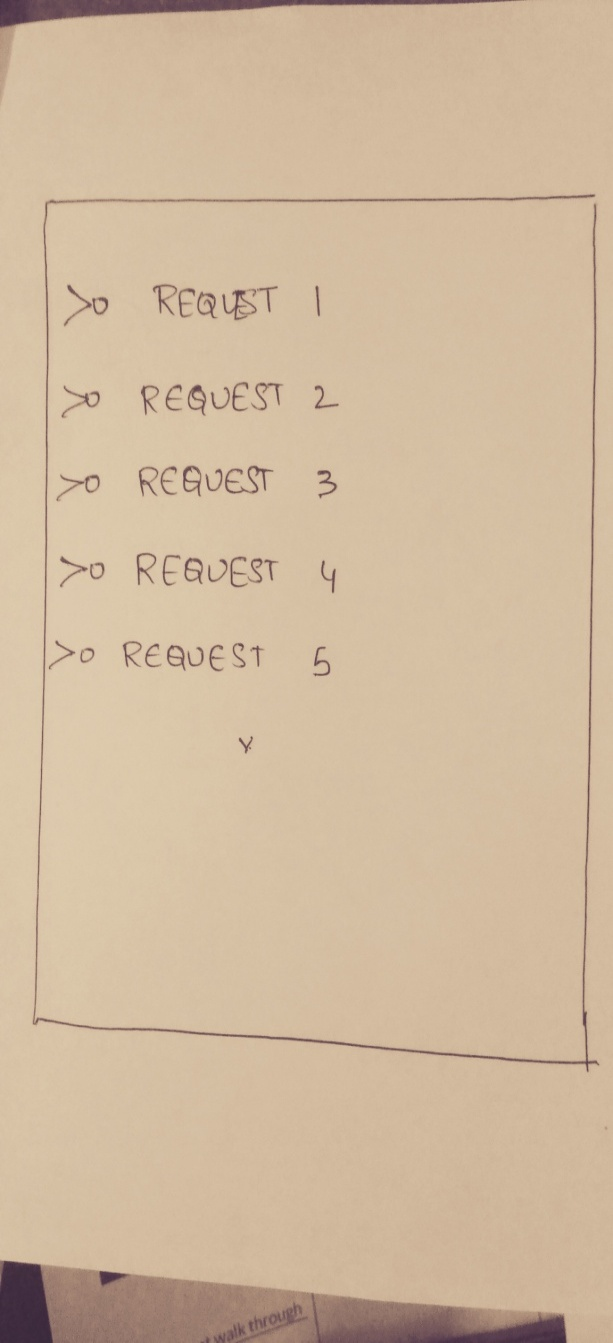 >o REQUEST 1
>o REQUEST 2
>o REQUEST 3
>o REQUEST 4
>o REQUEST 5
walk through